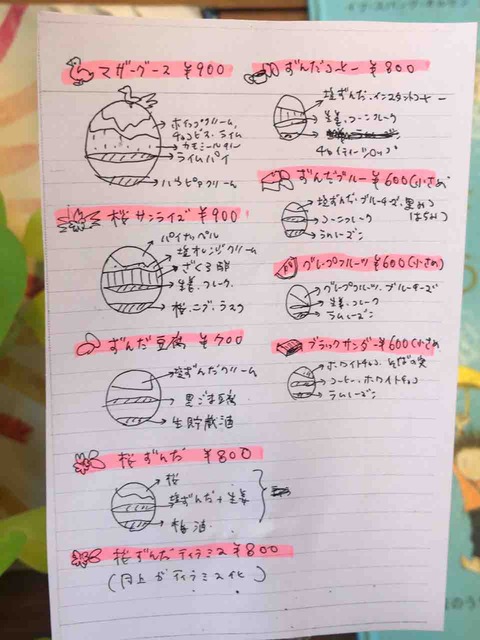 マザーグース ¥900
ホイップクリーム、
チョコビス・ライム
カモミール
ライムパイ
ハウピアクリーム
桜サンライズ ¥900
パイナップル
塩オレンジクリーム
ざくろ酢
生姜・フレーク
桜・ラスク
ずんだ豆腐 ¥700
塩ずんだクリーム
黒ごま豆腐
生貯蔵酒
桜ずんだ ¥800
桜
塩ずんだ+生姜
梅酒
桜ずんだティラミス ¥800
(同上がティラミス化)
ずんだコーヒー ¥800
塩ずんだ・インスタントコーヒー
生姜・コーンフレーク
ずんだブルー ¥600(小さめ)
塩ずんだ・ブルーチーズ・黒みつ
はちみつ
コーンフレーク
ラムレーズン
グレープフルーツ ¥600(小さめ)
グレープフルーツ、ブルーチーズ
生姜・フレーク
ラムレーズン
ブラックサンダー ¥600(小さめ
ホワイトチョコ、そばの実
コーヒー・ホワイトチョコ
ラムレーズン
イヴ・スパング・オルセン